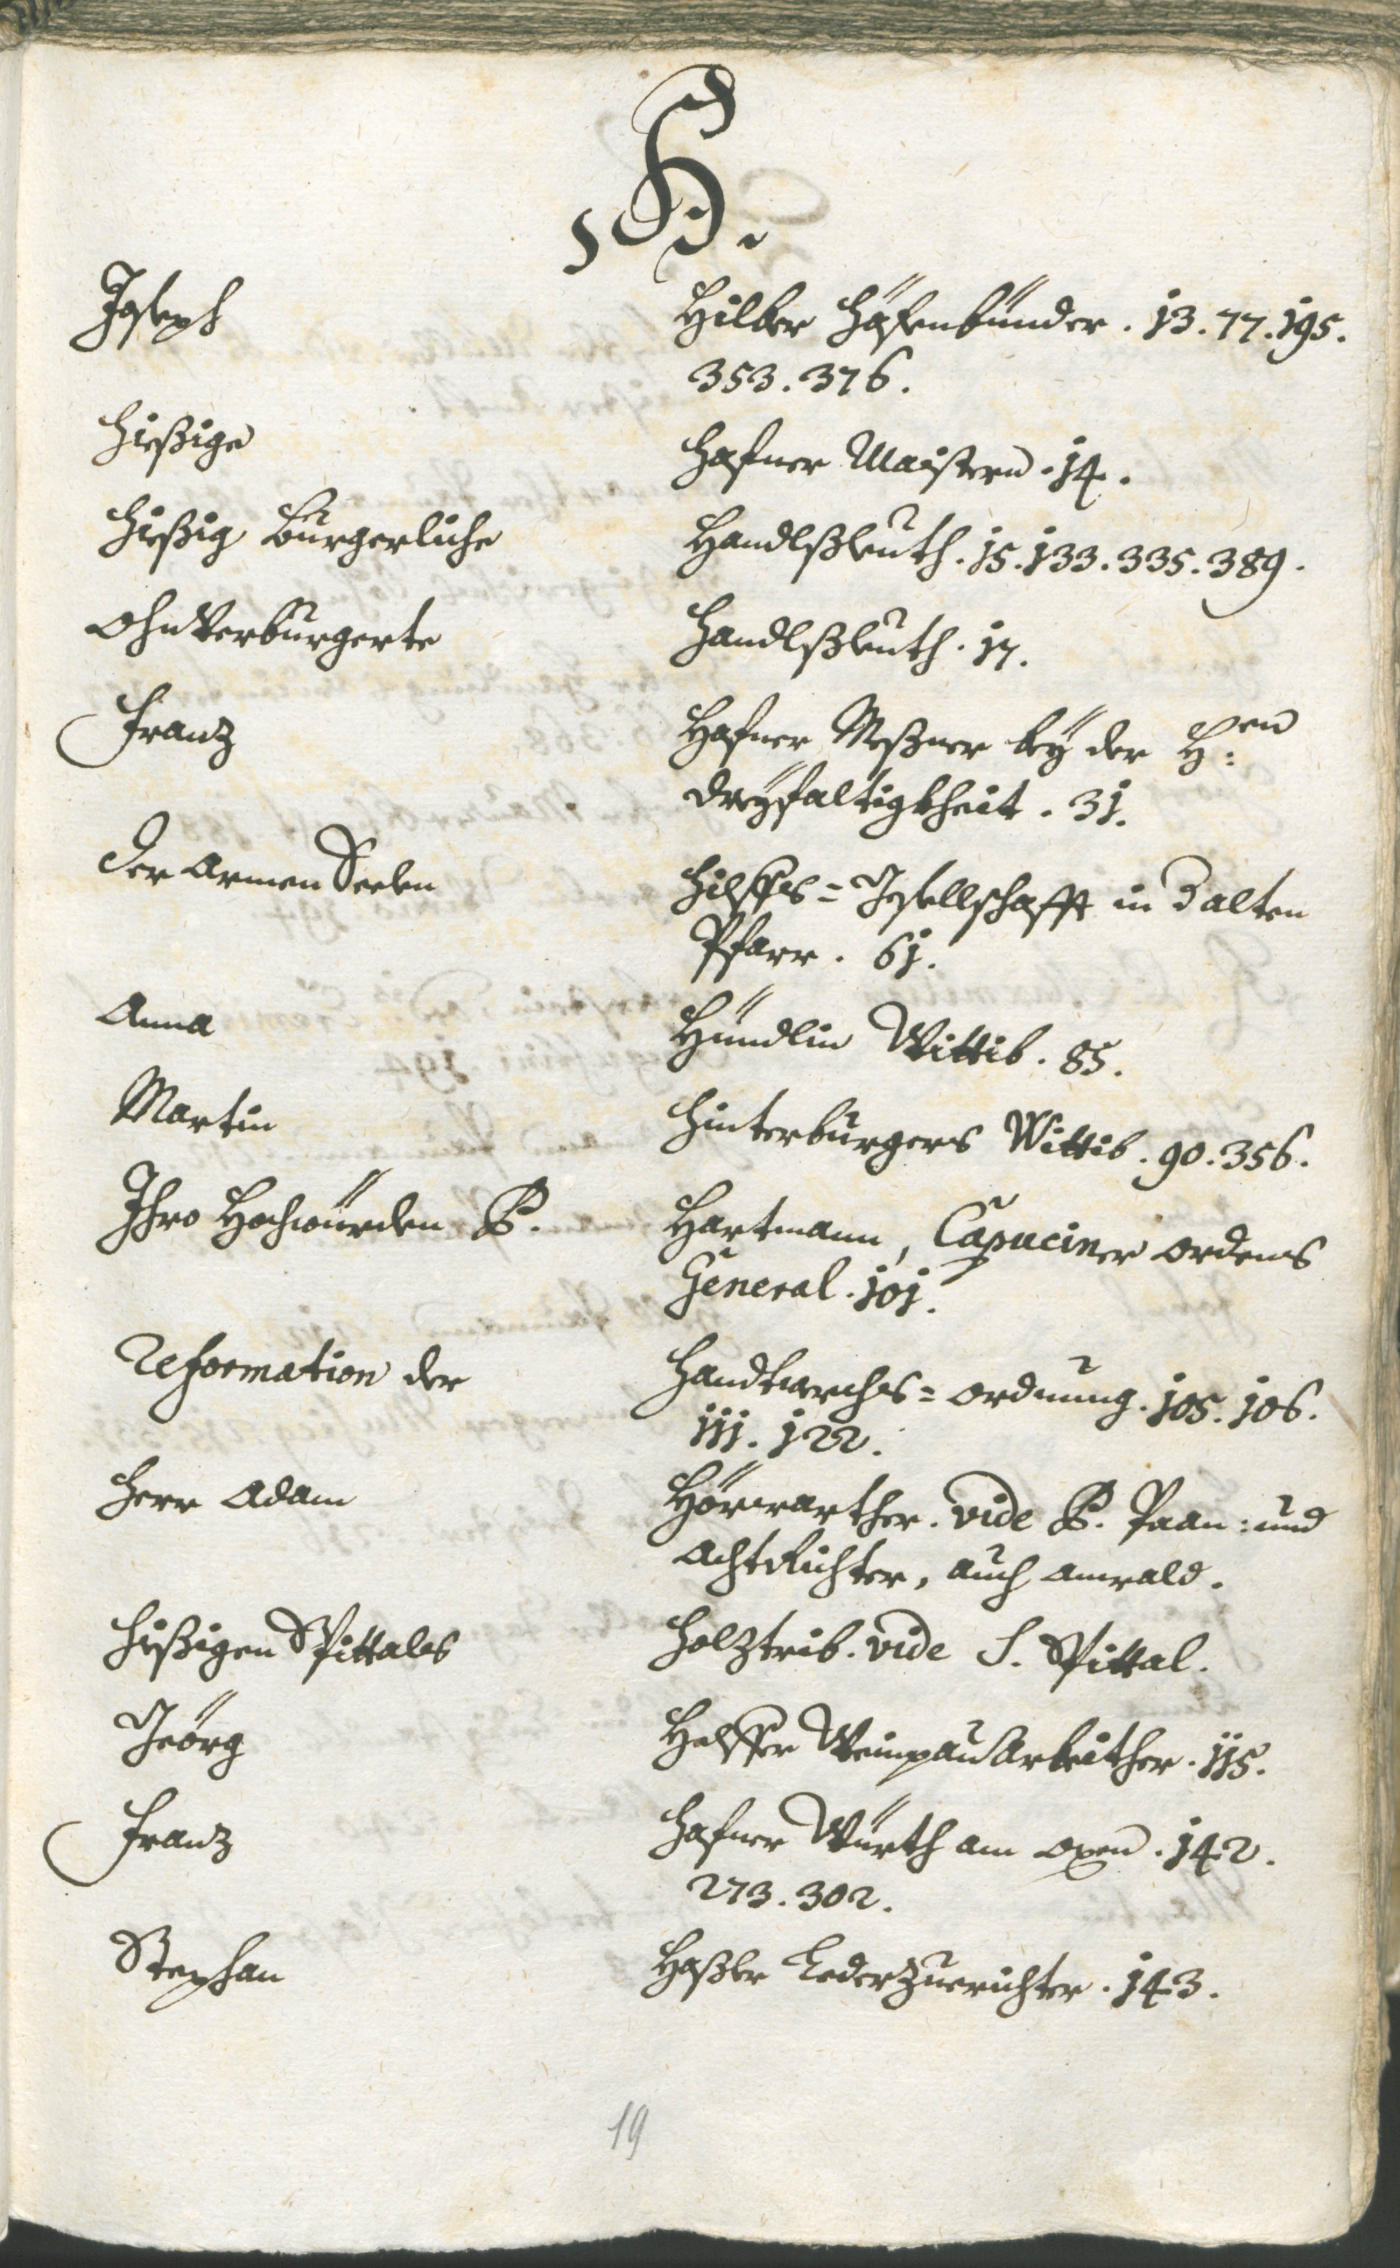 H.
Joseph Hilber Häfenbünder. 13. 77. 195.
353. 376.
hießige Hafner Maistern. 14.
hießig burgerliche Handlßleuth. 15. 133. 335. 389.
ohnverburgerte Handlßleuth. 17.
Franz Hafner Meßner beÿ der H:en
dreÿfaltigkheit. 31.
Der armen Seelen Hilffs=Gesellschafft in d alten
Pfarr. 61.
Anna Hündlin Wittib. 85.
Martin Hinterburgers Wittib. 90. 356.
Ihro Hochwürden P. Hartmann, Capuciner ordens
General. 101.
Reformation der Handtwerchs=ordnung. 105. 106.
111. 122.
Herr Adam Hörwarther. vide B. Paan: und
Achtrichter, auch anwald.
hießigen Spittals Holztrib. vide S. Spittal.
Geörg Helffer Weinpau Arbeither. 115.
Franz Hafner Würth am oxen. 142.
273. 302.
Stephan Haßler Lederzuerichter. 143.
19